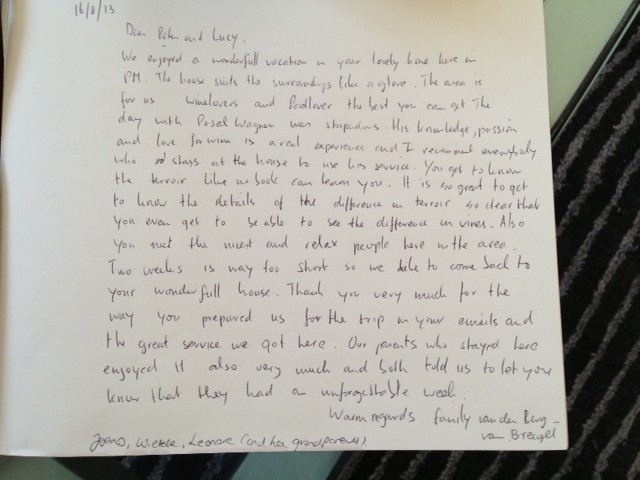 16/8/13
Dear Peter and Lucy,
We enjoyed a wonderfull vacation in your lovely home here in
PM. The house suits the surroundings like a glove. The area is
for us winelovers and foodlover the best you can get. The
day with Pascal Wagner was stupendous. His knowledge, passion
and love for wine is a real experience and I recommend everybody
who stays at the house to use his service. You get to know
the terroir like no book can learn you. It is so great to get
to know the details of the difference in terroir so clear that
you even get to be able to see the difference in vines. Also
you meet the nicest and relax people here in the area.
Two weeks is way too short so we like to come back to
your wonderfull house. Thank you very much for the
way you prepared us for the trip in your emails and
the great service we got here. Our parents who stayed here
enjoyed it also very much and both told us to let you
know that they had an unforgettable week.
Warm regards family van den Burg -
van Breugel
Leonore (and her grandparents)